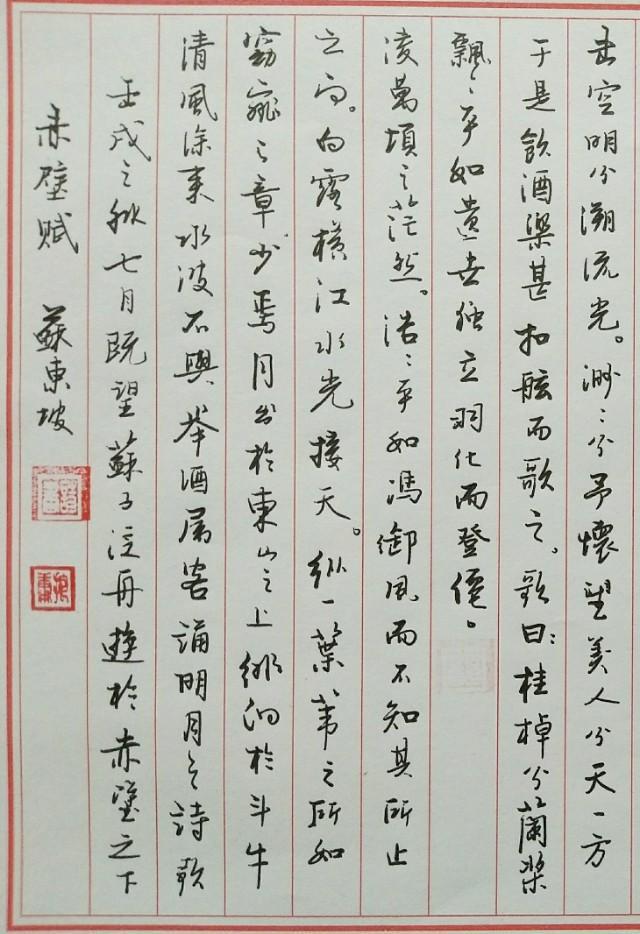 赤壁赋 蘇東坡
壬戌之秋七月既望蘇子泛舟遊於赤壁之下
清風徐来水波不興举酒属客誦明月之詩歌
窈窕之章少焉月出於東山之上徘徊於斗牛
之间。白露横江水光接天。纵一葉葦之所如
凌萬頃之茫然。浩〻乎如馮御風而不知其所止
飄〻乎如遺世独立羽化而登僊。
于是飲酒樂甚扣舷而歌之。歌曰:桂棹兮蘭桨
击空明兮溯流光。渺〻兮予懷望美人兮天一方